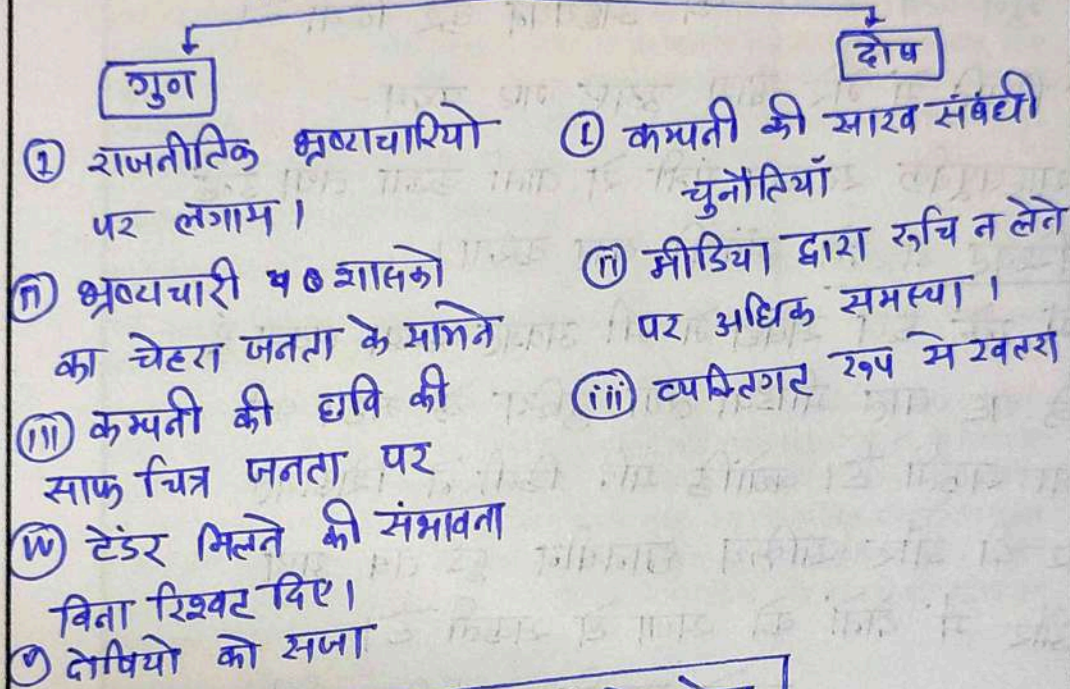 गुण
① राजनीतिक भ्रष्टाचारियो
पर लगाम।
(ii) भ्रष्टाचारी शासको
का चेहरा जनता के सामने
(iii) कम्पनी की छवि की
साफ चित्र जनता पर
(iv) टेंडर मिलने की संभावना
बिना रिश्वट दिए।
(v) दोषियो को सजा
दोष
① कम्पनी की साख संबंधी
चुनौतियाँ
(ii) मीडिया द्वारा रूचि न लेने
पर अधिक समस्या।
(iii) व्यक्तिगत रूप से खतरा